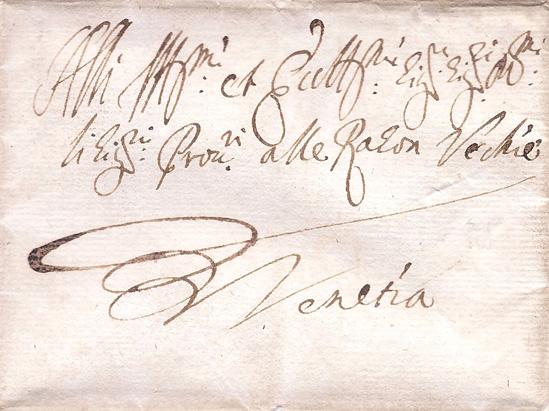 Alli Ill:mi et Ecc:mi Sig:ri Sig:ri
li Sig:ri Prou:ri alle Raxon Vechie
Venetia